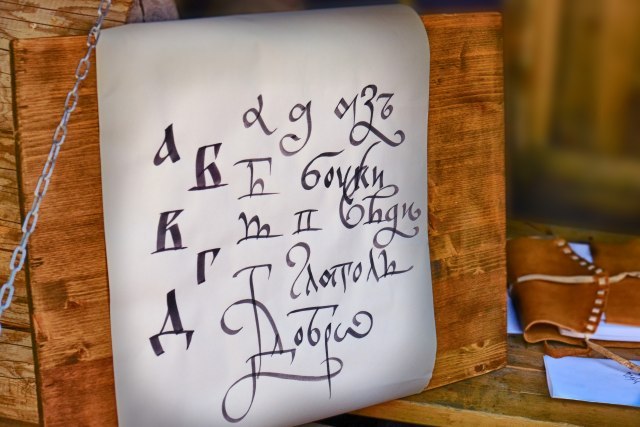 А а д азъ
Б Б боуки
В в п вѣди
Г г глаголь
Д добрѡ